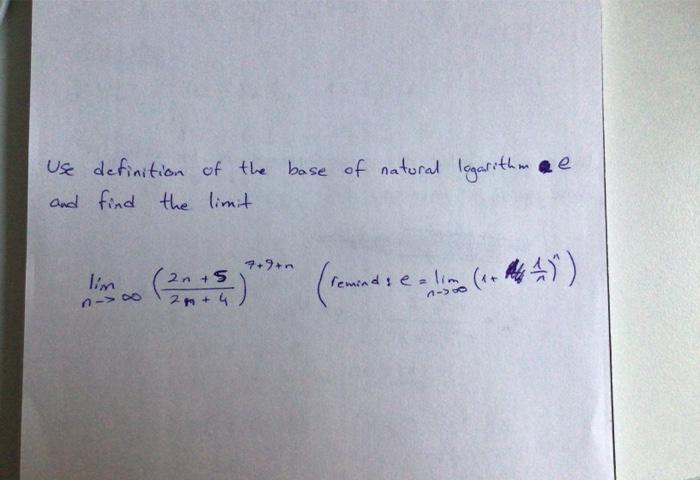 Use definition of the base of natural logarithm e
and find the limit
lim n->∞ (2n+5 / 2n+4)^7+9+n (remind: e = lim n->∞ (1+ 1/n)^n)